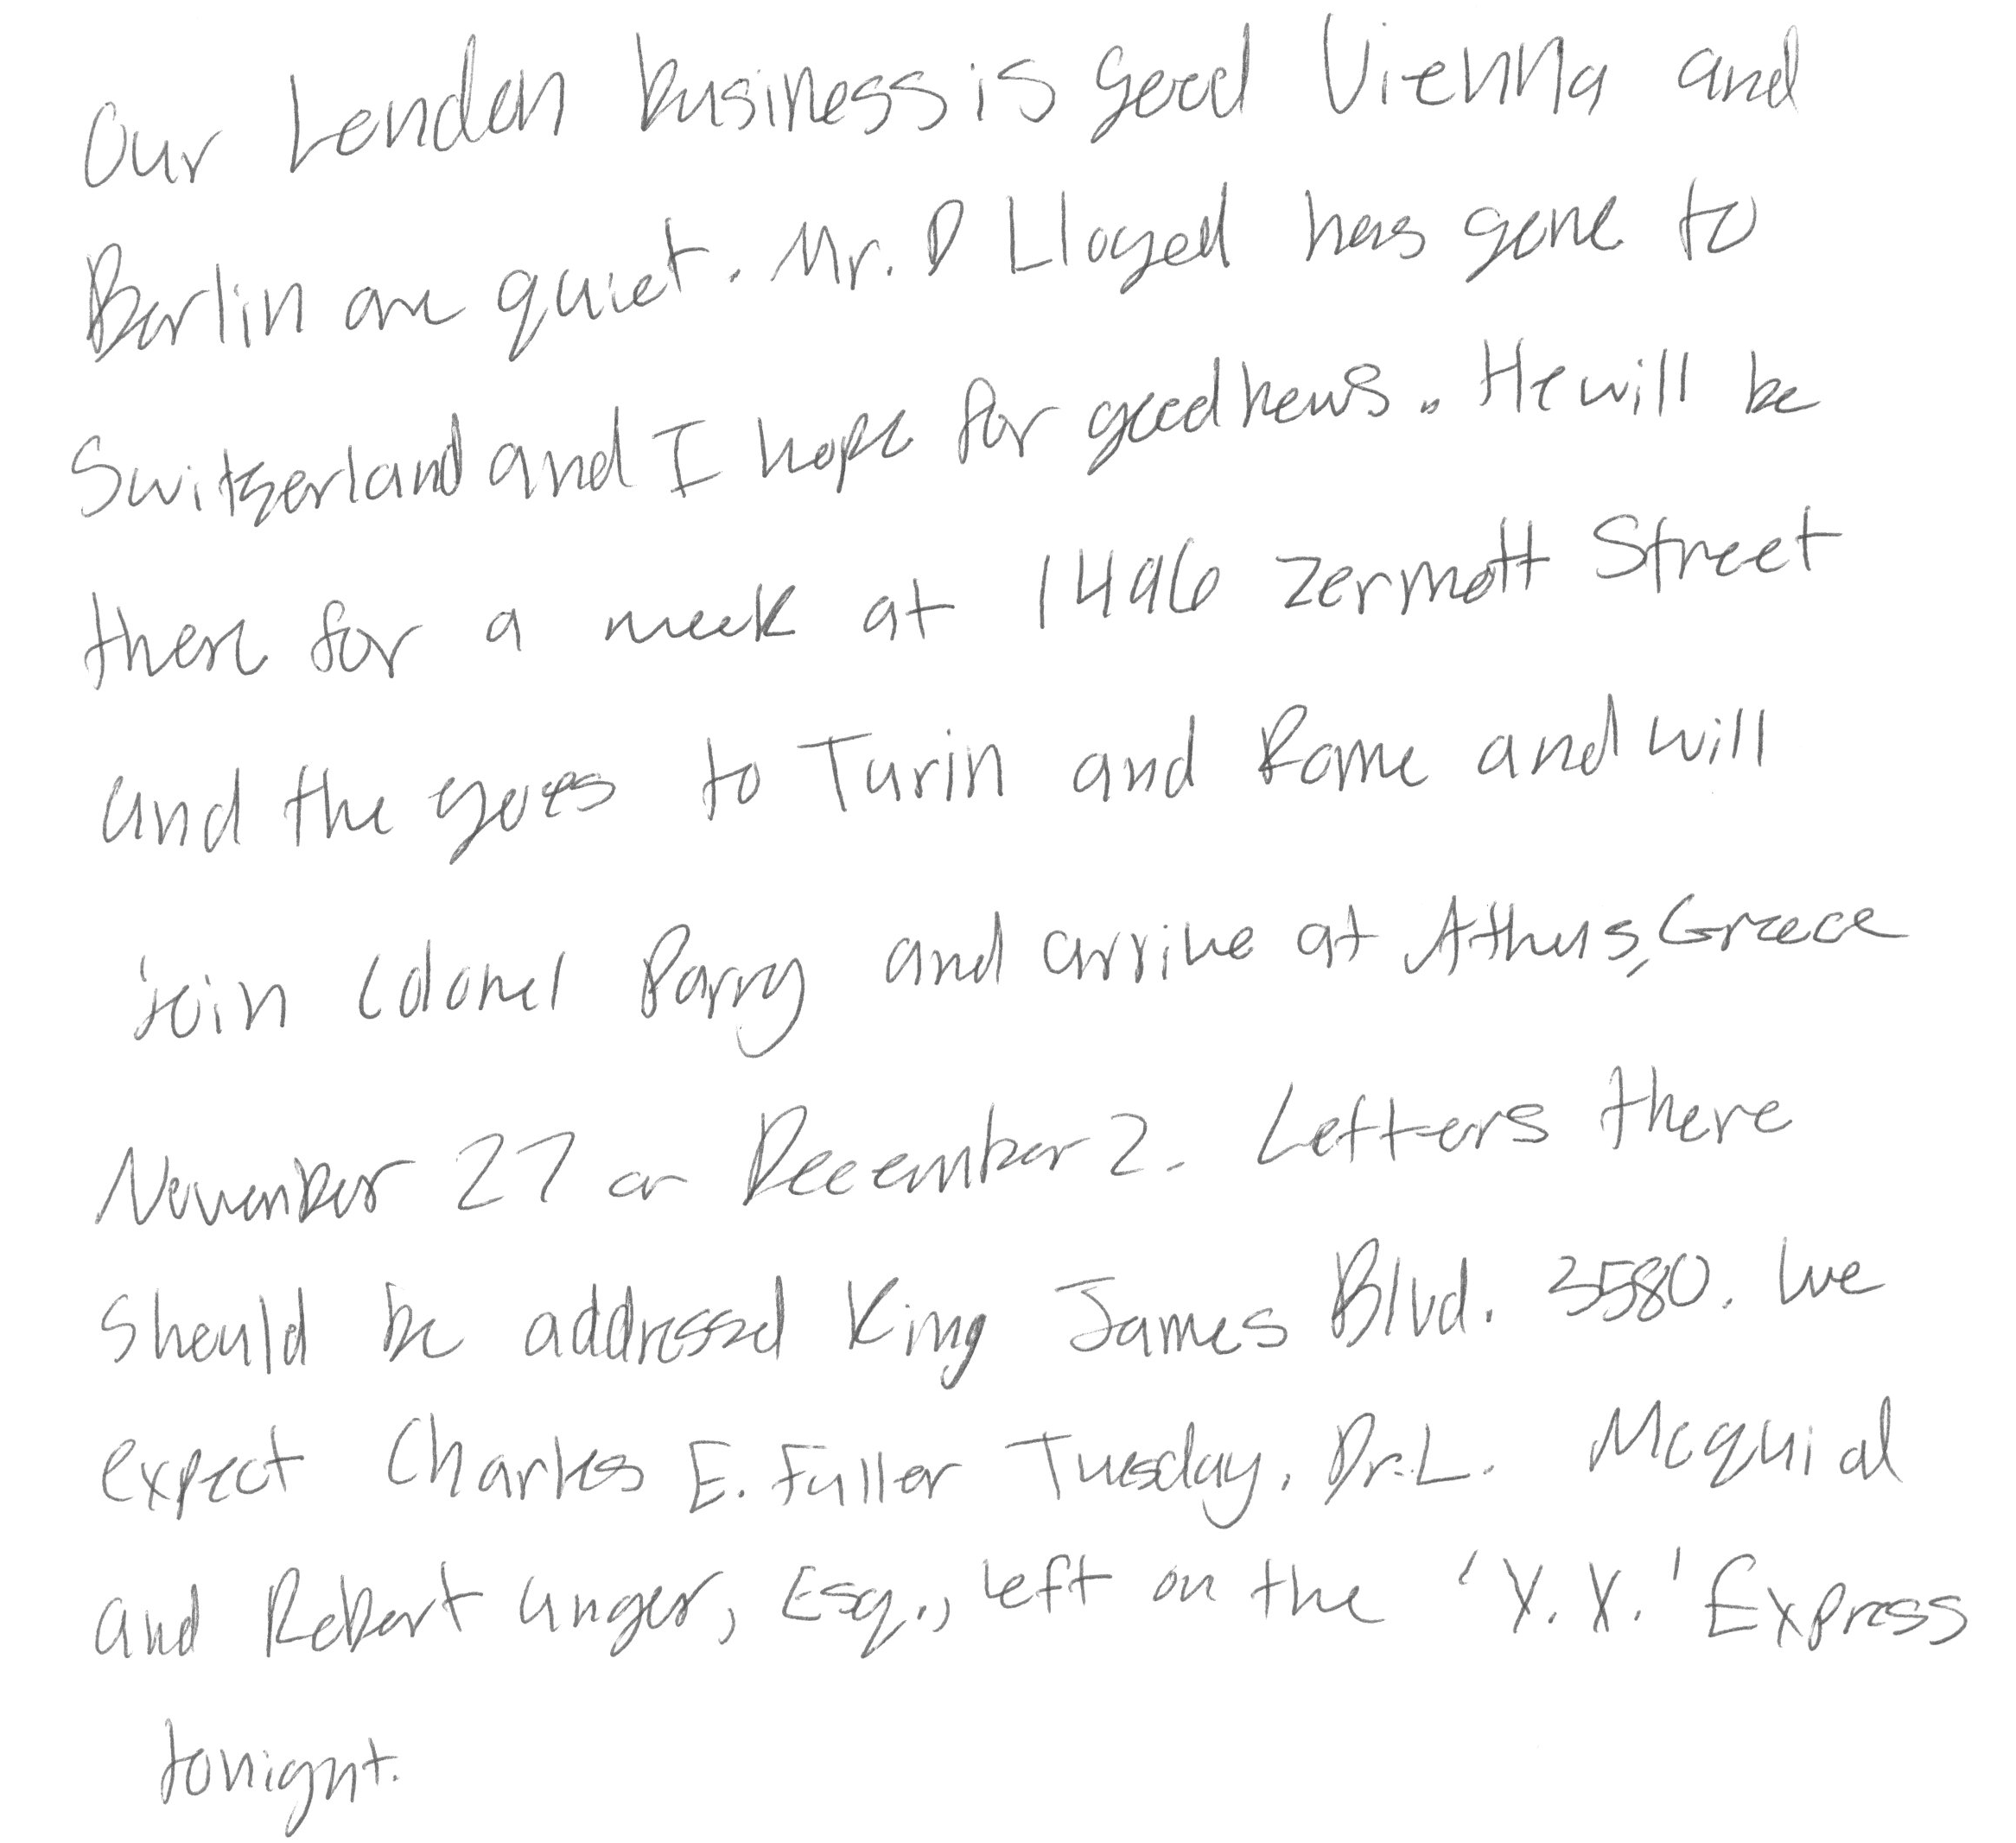 Our London business is good Vienna and
Berlin are quiet. Mr. D Lloyed has gone to
Switzerland and I hope for good news.. He will be
there for a week at 1496 Zermott Street
and the goes to Turin and Rome and will
join Colonel Parry and arrive at Athens, Greece
November 27 or December 2. Letters there
should be addressed King James Blvd. 3580. We
expect Charles E. Fuller Tuesday. Dr. L. McQuid
and Robert Unger, Esq., left on the 'Y.X.' Express
tonight.